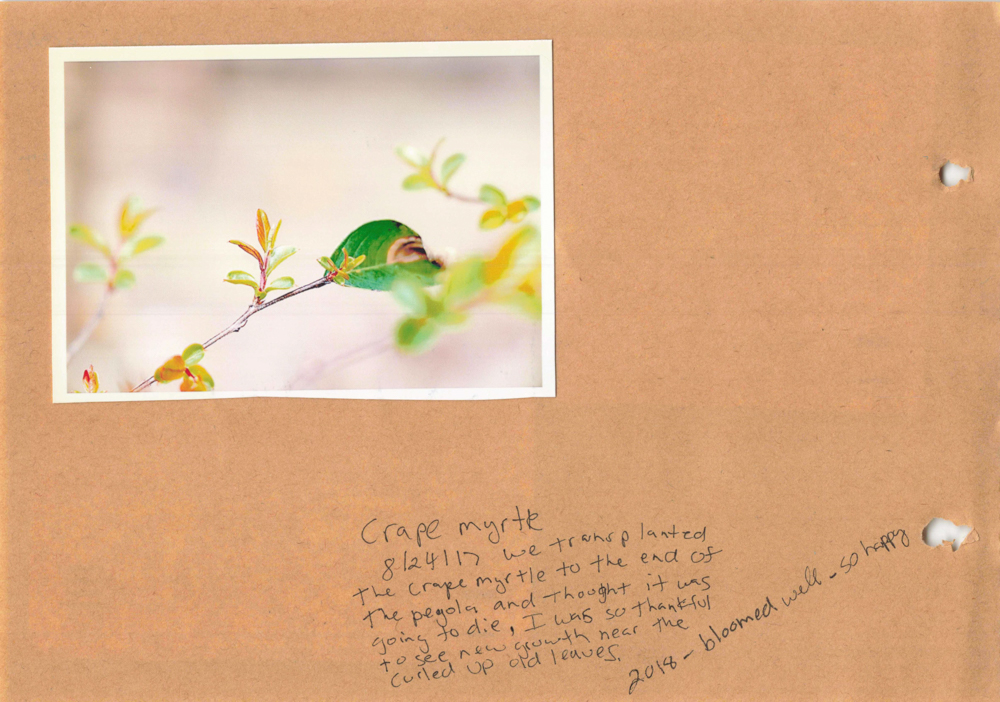 Crape myrtle
8/24/17 we transplanted
the crape myrtle to the end of
the pegola and thought it was
going to die, I was so thankful
to see new growth near the
curled up old leaves.
2018 - bloomed well - so happy